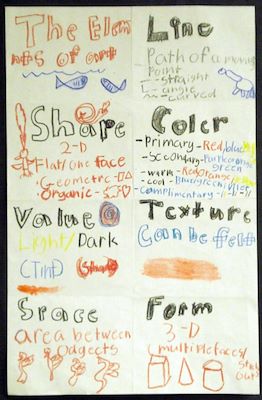 The Elem
nts of art
Line
Path of a moving
Point
-straight
-angle
-curved
Shape
2-D
Flat/one face
Geometric-
Organic-
Color
-Primary-Red/blue/
-Secondary-
green
-warm-Red/orange/
-Cool-Blue/green/
-Complimentary-
Value
Light/Dark
Texture
Can be felt
Space
area between
Form
3-D
(multiple faces/
Sticks
Out)